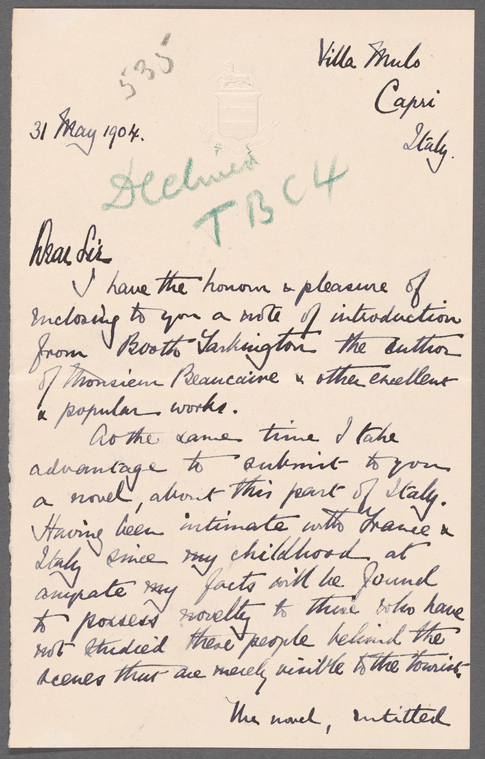 535
Villa Mulo
Capri
Italy.
31 May 1904.
Declined
TBC4
Dear Sir
I have the honour & pleasure of
enclosing to you a note of introduction
from Booth Tarkington the author
of Monsieur Beaucaire & other excellent
& popular works.
At the same time I take
advantage to submit to you
a novel, about this part of Italy.
Having been intimate with France &
Italy since my childhood at
my facts will be found
to possess novelty to those who have
not studied these people behind the
scenes thus are merely visible to the tourist.
The novel, entitled